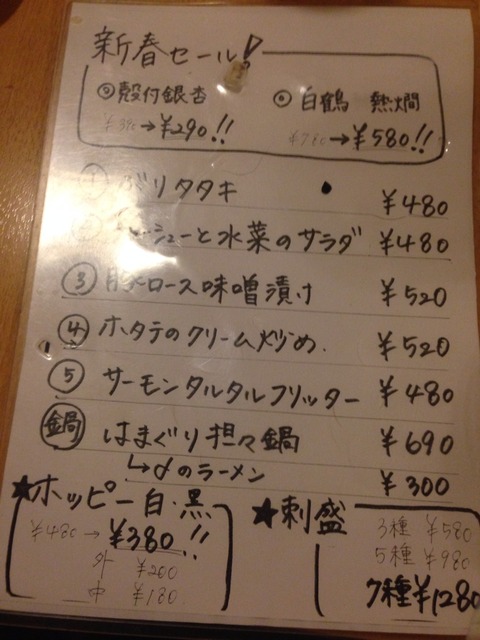 新春セール!
◎殻付銀杏 ◎白鶴 熱燗
¥390→¥290!! ¥780→¥580!!
① ぶりタタキ ¥480
シューと水菜のサラダ ¥480
③ 豚ロース味噌漬け ¥520
④ ホタテのクリーム炒め ¥520
⑤ サーモンタルタルフリッター ¥480
鍋 はまぐり担々鍋 ¥690
↳〆のラーメン ¥300
★ホッピー白・黒
¥480→¥380!!
外 ¥200
中 ¥180
★刺盛
3種 ¥580
5種 ¥980
7種 ¥1280